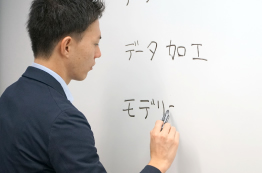 データ加工
モデリ